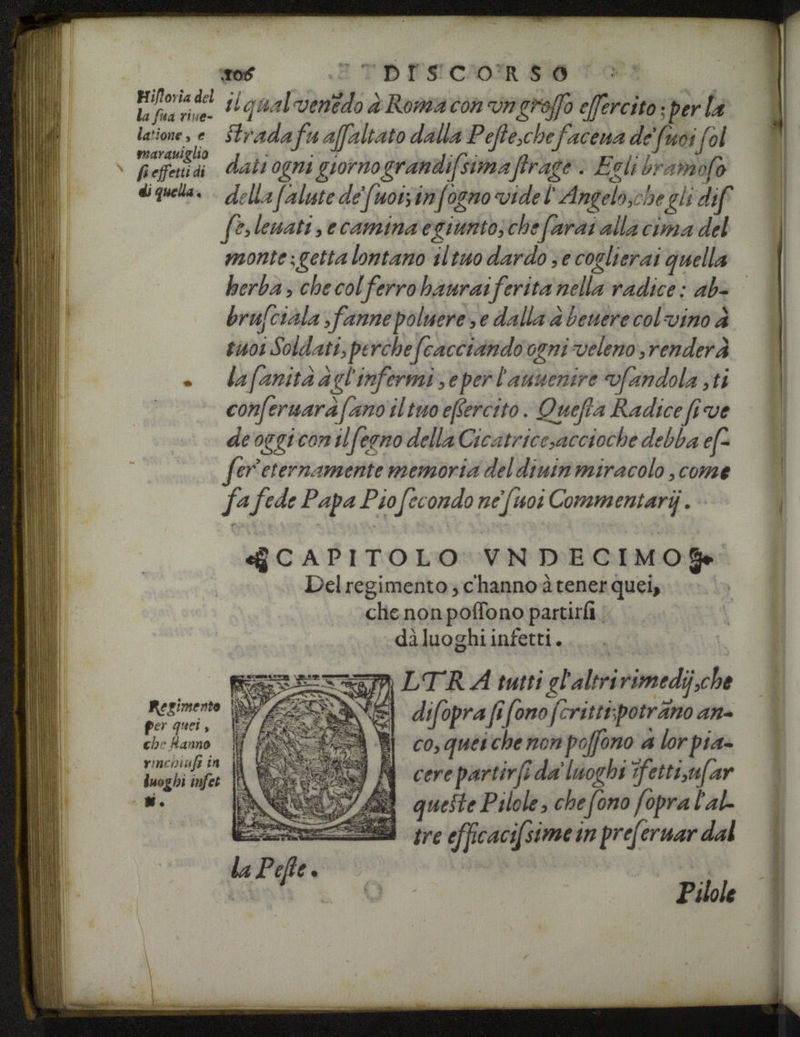 106 DISCORSO
Historia del
la sua riue-
latione, e
marauiglio
si effetti di
di quella.
il qual venēdo à Roma con vn grosso essercito; per la
strada fu assaltato dalla Peste, che faceua de' suoi sol
dati ogni giorno grandissima strage. Egli bramoso
della salute de' suoi; in sogno vide l' Angelo, che gli dis
se, leuati, e camina e giunto, che sarai alla cima del
monte; getta lontano il tuo dardo, e coglierai quella
herba, che col ferro haurai ferita nella radice: ab-
brusciala, fanne poluere, e dalla à beuere col vino à
tuoi Soldati, perche scacciando ogni veleno, renderà
la sanità à gl' infermi, e per l' auuenire vsandola, ti
conseruarà sano il tuo essercito. Questa Radice si ve
de oggi con il segno della Cicatrice, accioche debba es-
ser' eternamente memoria del diuin miracolo, come
fa fede Papa Pio secondo ne' suoi Commentarij.
CAPITOLO VNDECIMO
Del regimento, c'hanno à tener quei,
che non possono partirsi
dà luoghi infetti.
Regimento
per quei,
che hanno
rinchiusi in
luoghi infet
ti.
OLTRA tutti gl'altri rimedij, che
disopra si sono scritti; potrāno an-
co, quei che non possono à lor pia-
cere partirsi da' luoghi īfetti, usar
queste Pilole, che sono sopra l'al-
tre efficacissime in preseruar dal
la Peste.
Pilole